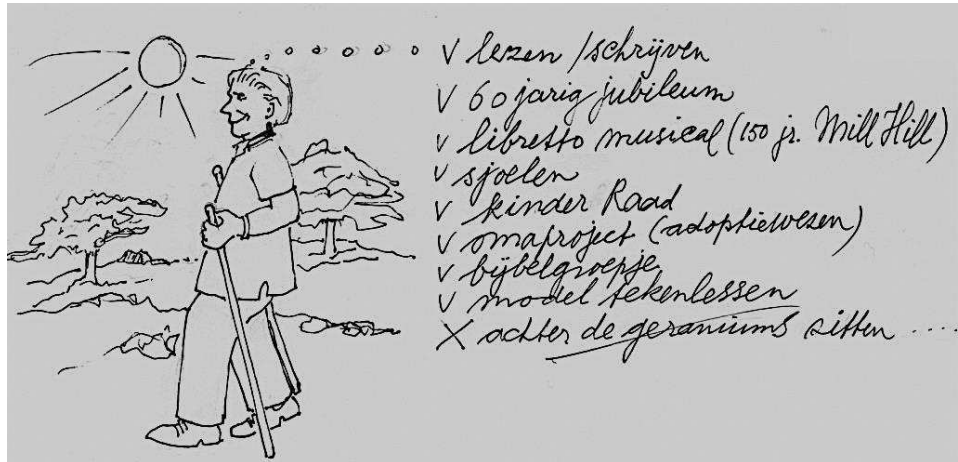 V lezen / schrijven
V 60 jarig jubileum
V libretto musical (150 jr. Mill Hill)
V sjoelen
V kinder Raad
V omaproject (adoptiewezen)
V bijbelgroepje
V model tekenlessen
X achter de geraniums zitten ....